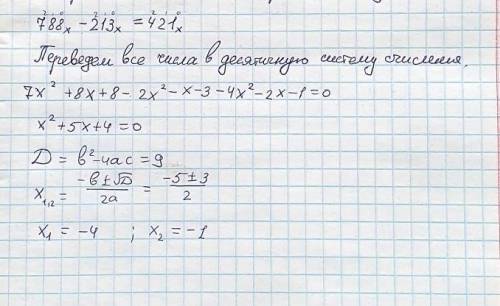 788ₓ - 213ₓ = 421ₓ
Переведем все числа в десятичную систему счисления.
7x² + 8x + 8 - 2x² - x - 3 - 4x² - 2x - 1 = 0
x² + 5x + 4 = 0
D = в² - 4ac = 9
x₁,₂ = (-в ± √D)/2a = (-5 ± 3)/2
x₁ = -4 ; x₂ = -1